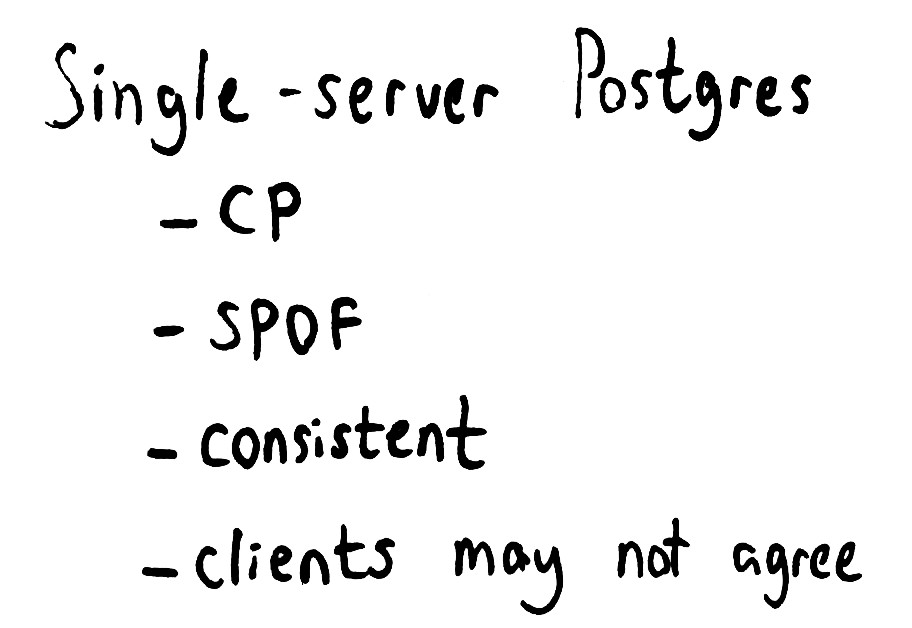 Single-server Postgres
- CP
- SPOF
- consistent
- clients may not agree